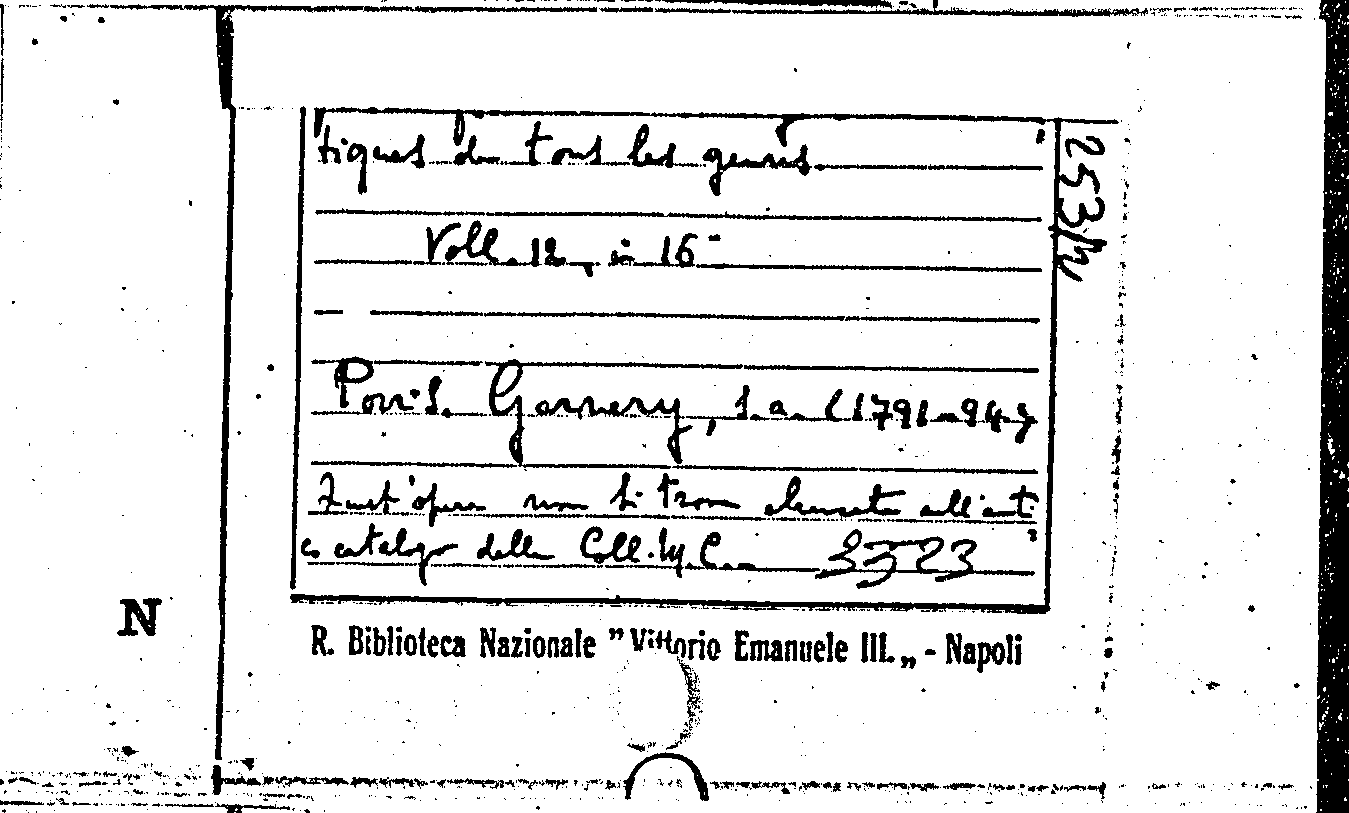 tiques de tous les genres.
Voll. 12, in 16°
Paris. Garnery, s. a. (1791-94)
Quest'opera non si trova elencata nell'anti
co catalogo della Coll. M. C.
N
R. Biblioteca Nazionale "Vittorio Emanuele III.„ - Napoli